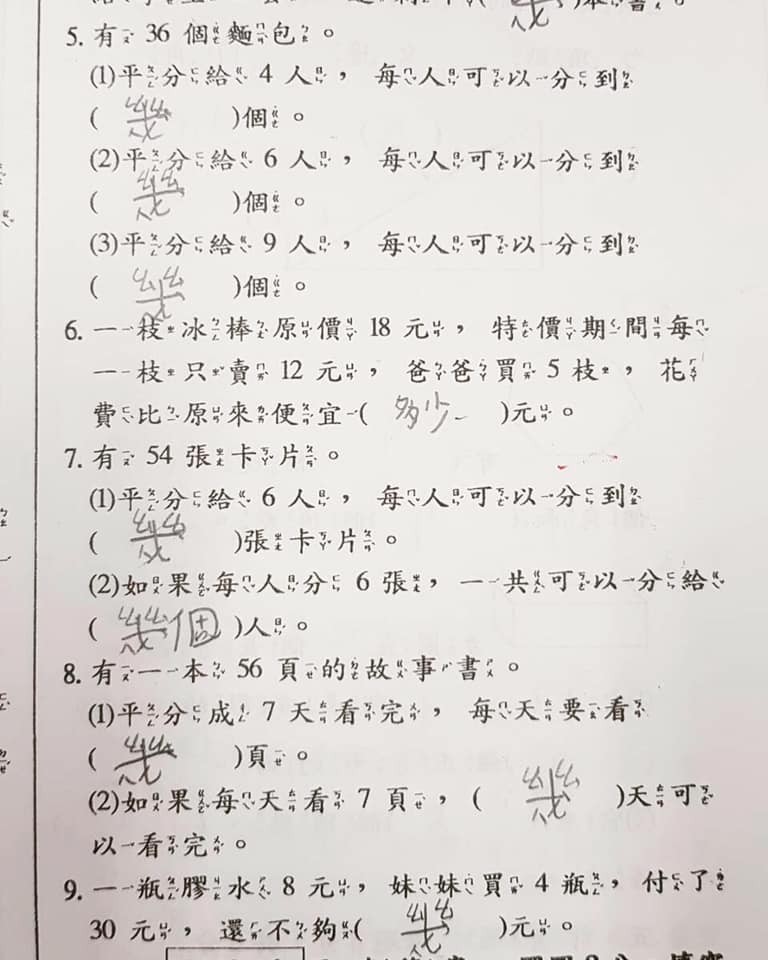 )本書。
5. 有 36 個麵包。
(1)平分給 4 人，每人可以分到
( 幾 )個。
(2)平分給 6 人，每人可以分到
( 幾 )個。
(3)平分給 9 人，每人可以分到
( 幾 )個。
6. 一枝冰棒原價 18 元，特價期間每
一枝只賣 12 元，爸爸買 5 枝，花
費比原來便宜( 多少 )元。
7. 有 54 張卡片。
(1)平分給 6 人，每人可以分到
( 幾 )張卡片。
(2)如果每人分 6 張，一共可以分給
( 幾個 )人。
8. 有一本 56 頁的故事書。
(1)平分成 7 天看完，每天要看
( 幾 )頁。
(2)如果每天看 7 頁，( 幾 )天可
以看完。
9. 一瓶膠水 8 元，妹妹買 4 瓶，付了
30 元，還不夠( 幾 )元。